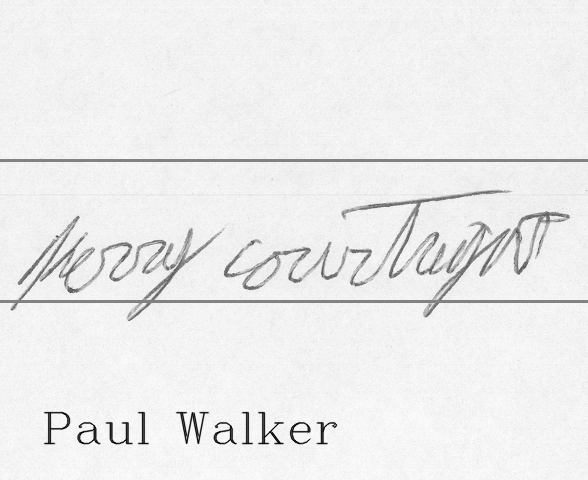 Merry Courtright
Paul Walker